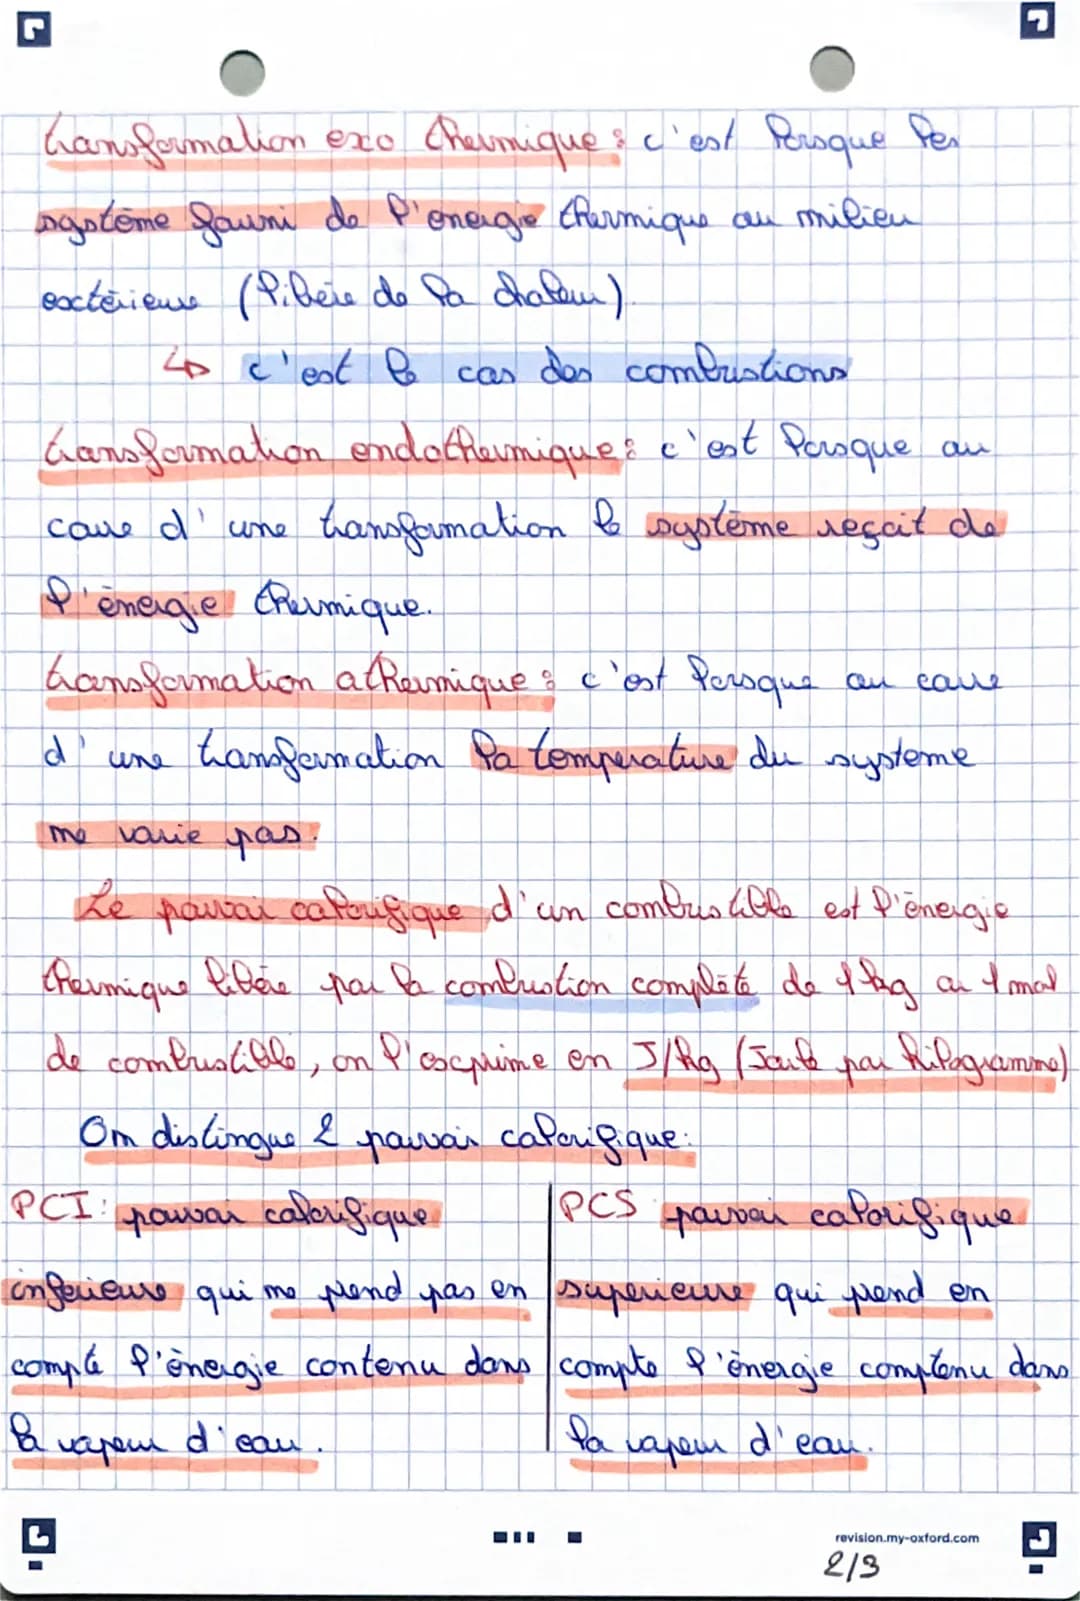 transformation exo thermique : c'est lorsque les
système fourni de l'energie thermique au milieu
extérieure (libère de la chaleur).
↳ c'est le cas des combustions
transformation endothermique : c'est lorsque au
cour d'une transformation le système reçoit de
l'énergie thermique.
transformation athermique : c'est lorsque au cour
d'une transformation la temperature du systeme
ne varie pas.
Le pouvoir calorifique d'un combustible est l'énergie
thermique libère par la combustion complète de 1 kg ou 1 mol
de combustible, on l'exprime en J/kg (Joule par kilogramme)
On distingue 2 pouvoir calorifique :
PCI : pouvoir calorifique
inferieure qui ne prend pas en
compte l'énergie contenu dans
la vapeur d'eau.
PCS pouvoir calorifique
superieure qui prend en
compte l'énergie comptenu dans
la vapeur d'eau.
revision.my-oxford.com
2/3